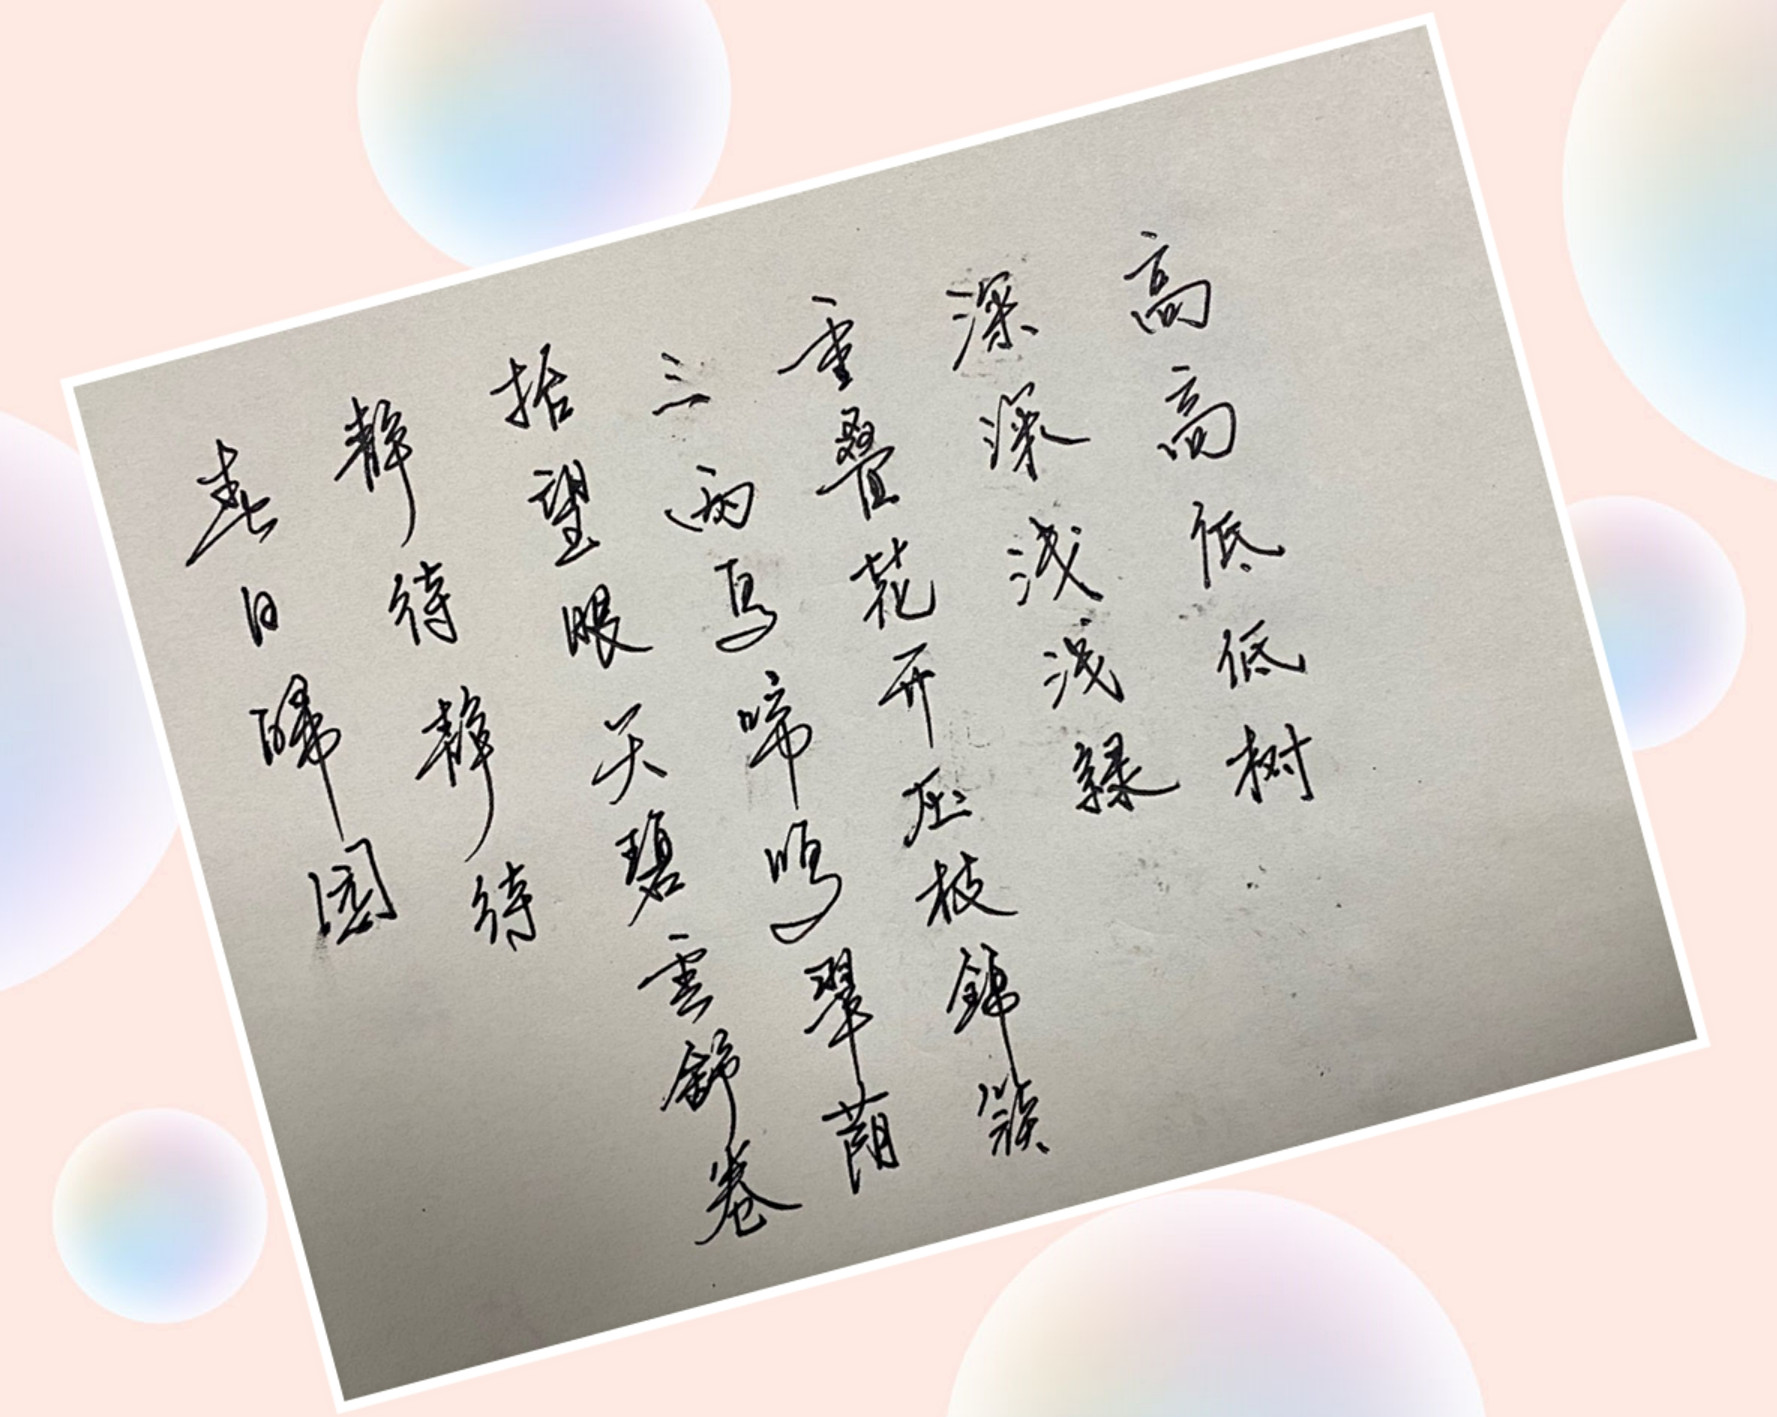 高高低低树
深深浅浅绿
重叠花开压枝锦簇
三两鸟啼鸣翠荫
抬望眼天碧雲舒卷
静待静待
春日歸園